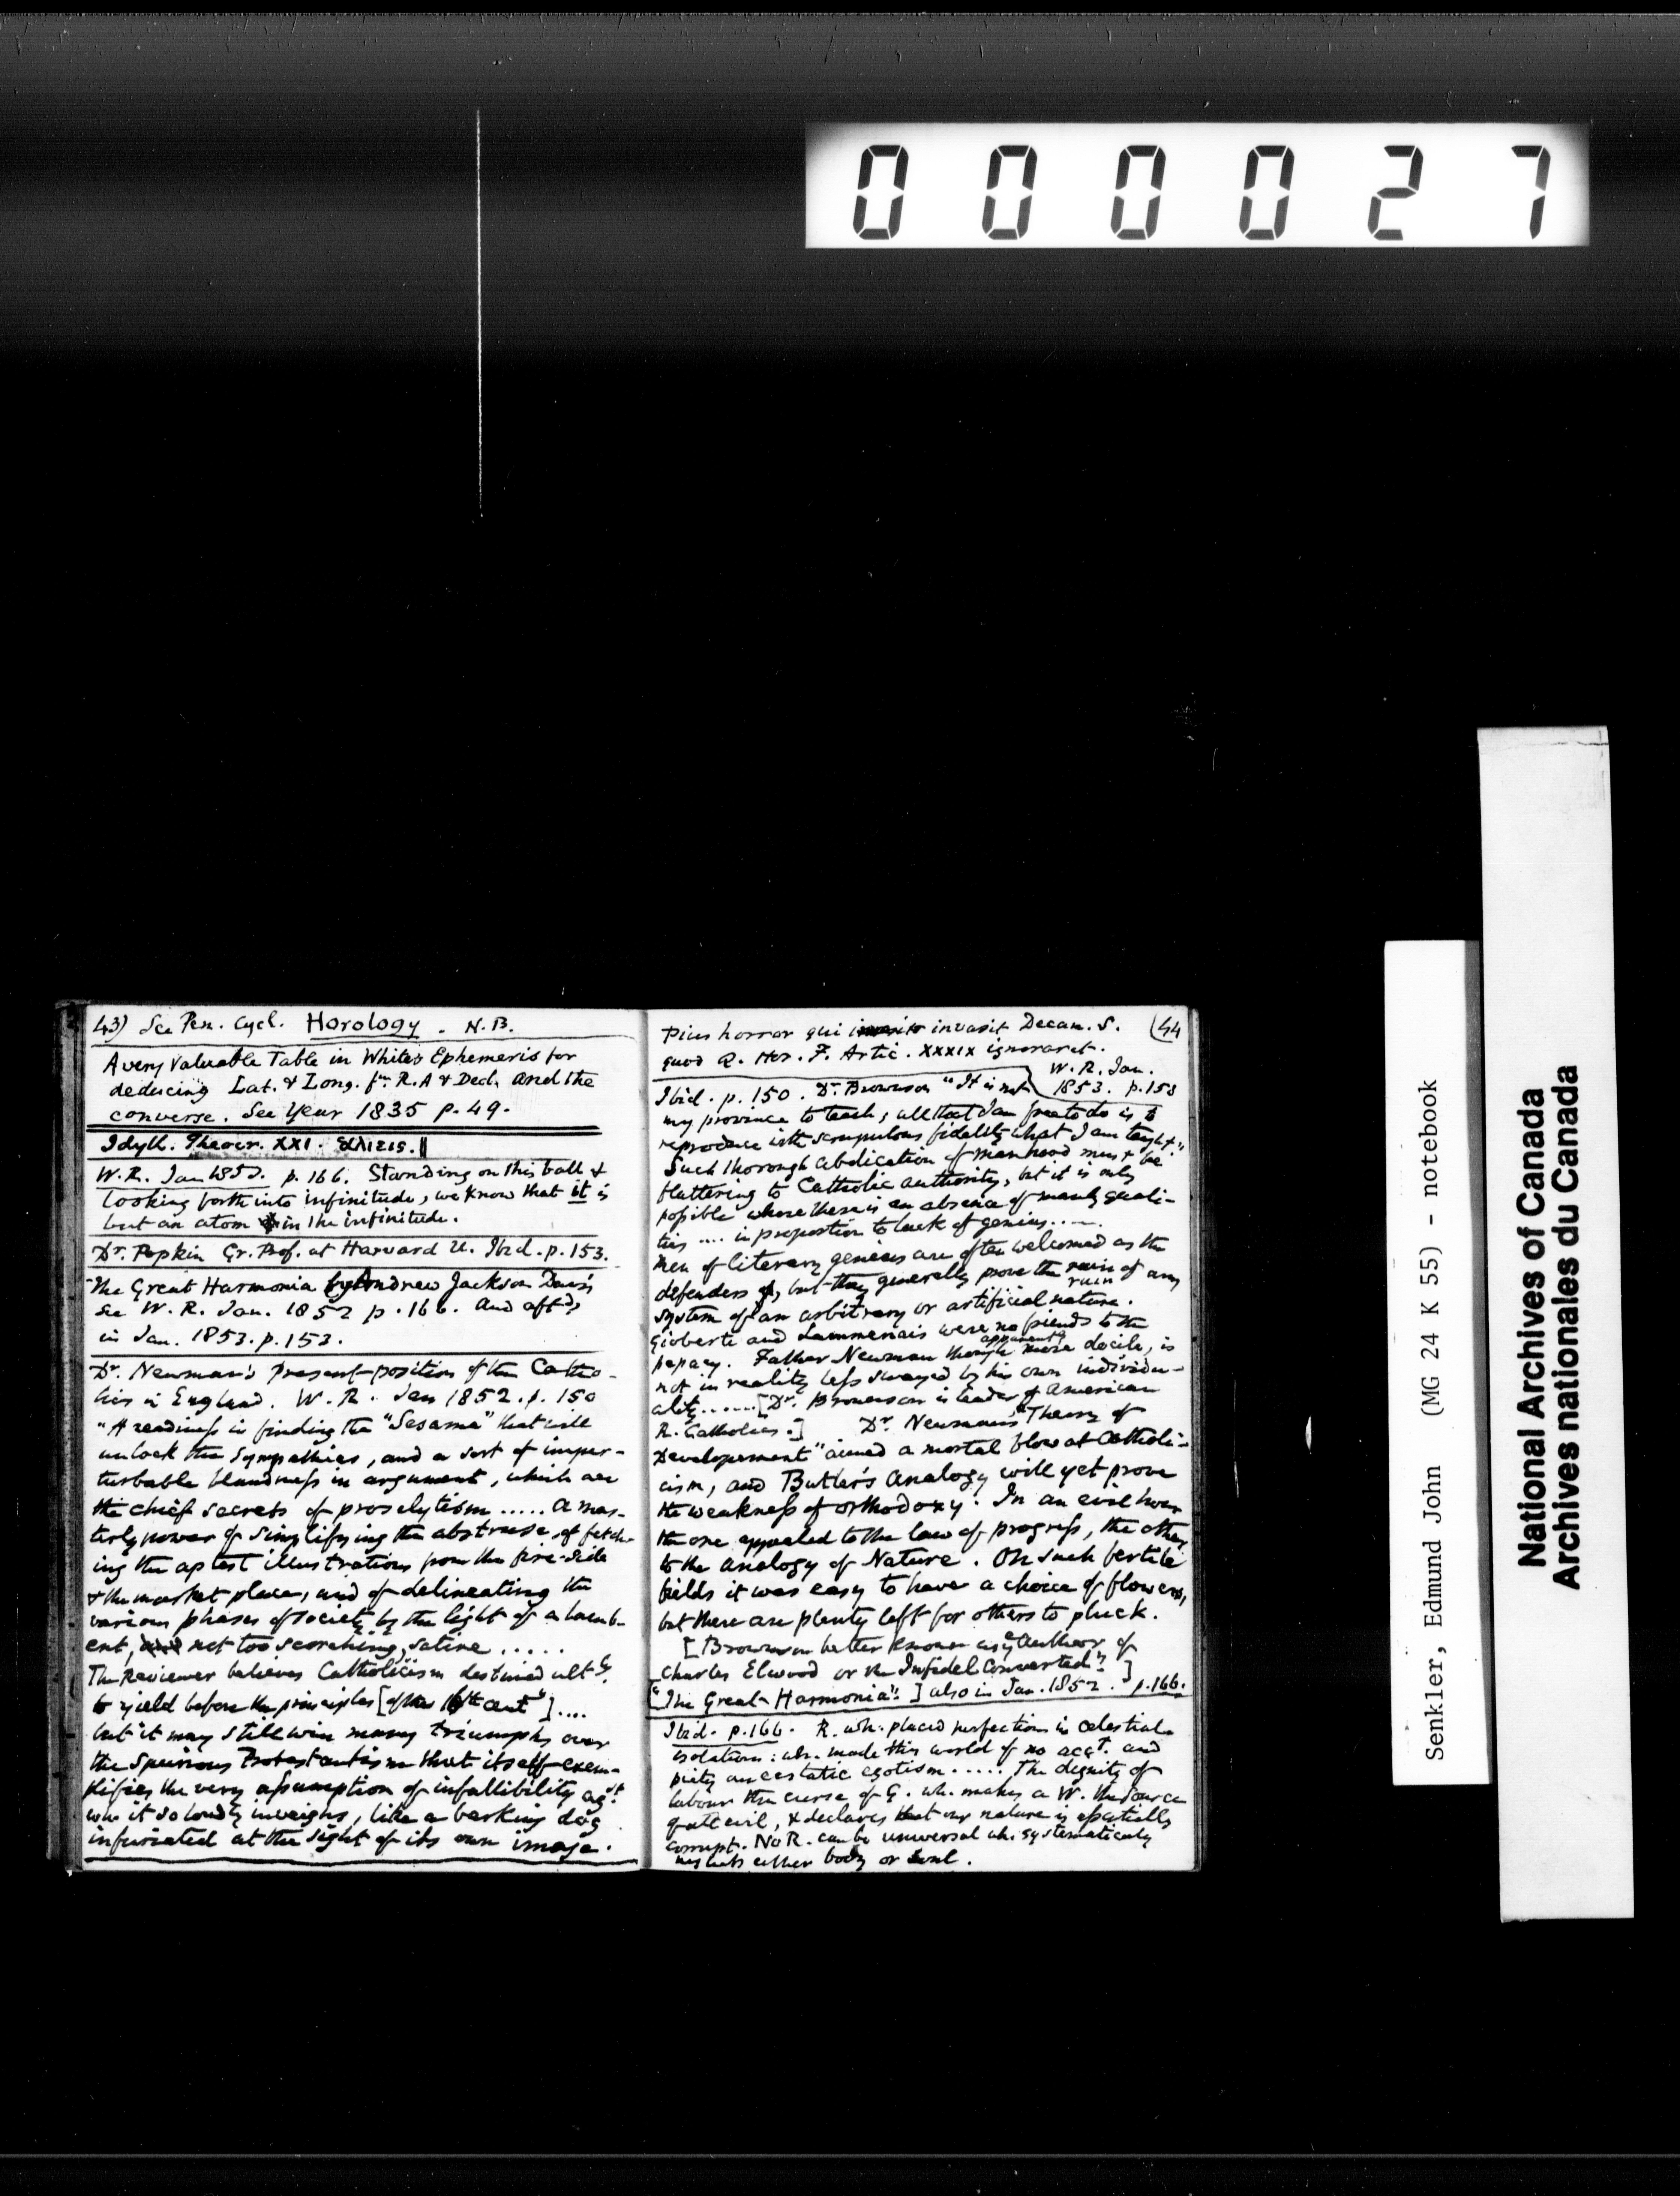 000027
43) See Pen. Cycl. Horology - N.B.
A very Valuable Table in White's Ephemeris for
deducing Lat. & Long. fm. R.A & Decl. and the
converse. See Year 1835 p. 49.
Idyll. Theocr. XXI.
W.R. Jan 1853. p. 166. Standing on this ball &
looking forth into infinitude, we know that it is
but an atom in the infinitude.
Dr. Popkin Gr. Prof. at Harvard U. Ibid. p. 153.
The Great Harmonia by Andrew Jackson Davis
see W. R. Jan. 1852 p. 166. and aftds
in Jan. 1853. p. 153.
Dr. Newman's Present position of the Catho-
lics in England. W. R. Jan 1852. p. 150
"A readiness in finding the "Sesame" that will
unlock the sympathies, and a sort of imper-
turbable blandness in argument, which are
the chief secrets of proselytism ..... a mas-
terly power of simplifying the abstruse, of fetch-
ing the aptest illustrations from the fire-side
& the market place, and of delineating the
various phases of society by the light of a lamb-
ent, not too scorching, satire .....
The Reviewer believes Catholicism destined ultly.
to yield before the principles [of the 16th cent"] ....
but "it may still win many triumphs over
the spurious Protestantism that itself exem-
plifies the very assumption of infallibility agst.
wh. it so loudly inveighs, like a barking dog
infuriated at the sight of its own image.
Pius horror qui invasit Decan. S. (44
quod Q. Hor. F. Artic. XXXIX ignoraret.
W. R. Jan.
1853. p. 153
Ibid. p. 150. Dr. Brownson "It is not
my province to teach; all that I am free to do is to
reproduce with scrupulous fidelity what I am taught."
Such thorough abdication of manhood must be
flattering to Catholic authority, but it is only
possible where there is an absence of manly quali-
ties .... in proportion to lack of genius .....
Men of literary genius are often welcomed as the
defenders of, but they generally prove the ruin of any
ruin
system of an arbitrary or artificial nature.
Gioberti and Lammenais were no friends to the
papacy. Father Newman though apparently more docile, is
not in reality less swayed by his own individu-
ality ...... [Dr. Brownson is leader of American
R. Catholics.] Dr. Newman's "Theory of
Developement" aimed a mortal blow at Catholi-
cism, and Butler's Analogy will yet prove
the weakness of orthodoxy. In an evil hour
the one appealed to the law of progress, the other
to the analogy of Nature. On such fertile
fields it was easy to have a choice of flowers,
but there are plenty left for others to pluck.
[Brownson better known as ye Author of
Charles Elwood or the Infidel Converted".]
["The Great Harmonia".] also in Jan. 1852. p. 166.
Ibid. p. 166. R. wh. placed perfection in celestial
isolation: wh. made this world of no acct. and
piety an ecstatic egotism ..... The dignity of
labour the curse of G. wh. makes a W. the source
of all evil, & declares that our nature is essentially
corrupt. No R. can be universal wh. systematically
neglects either body or soul.
Senkler, Edmund John (MG 24 K 55) - notebook
National Archives of Canada
Archives nationales du Canada